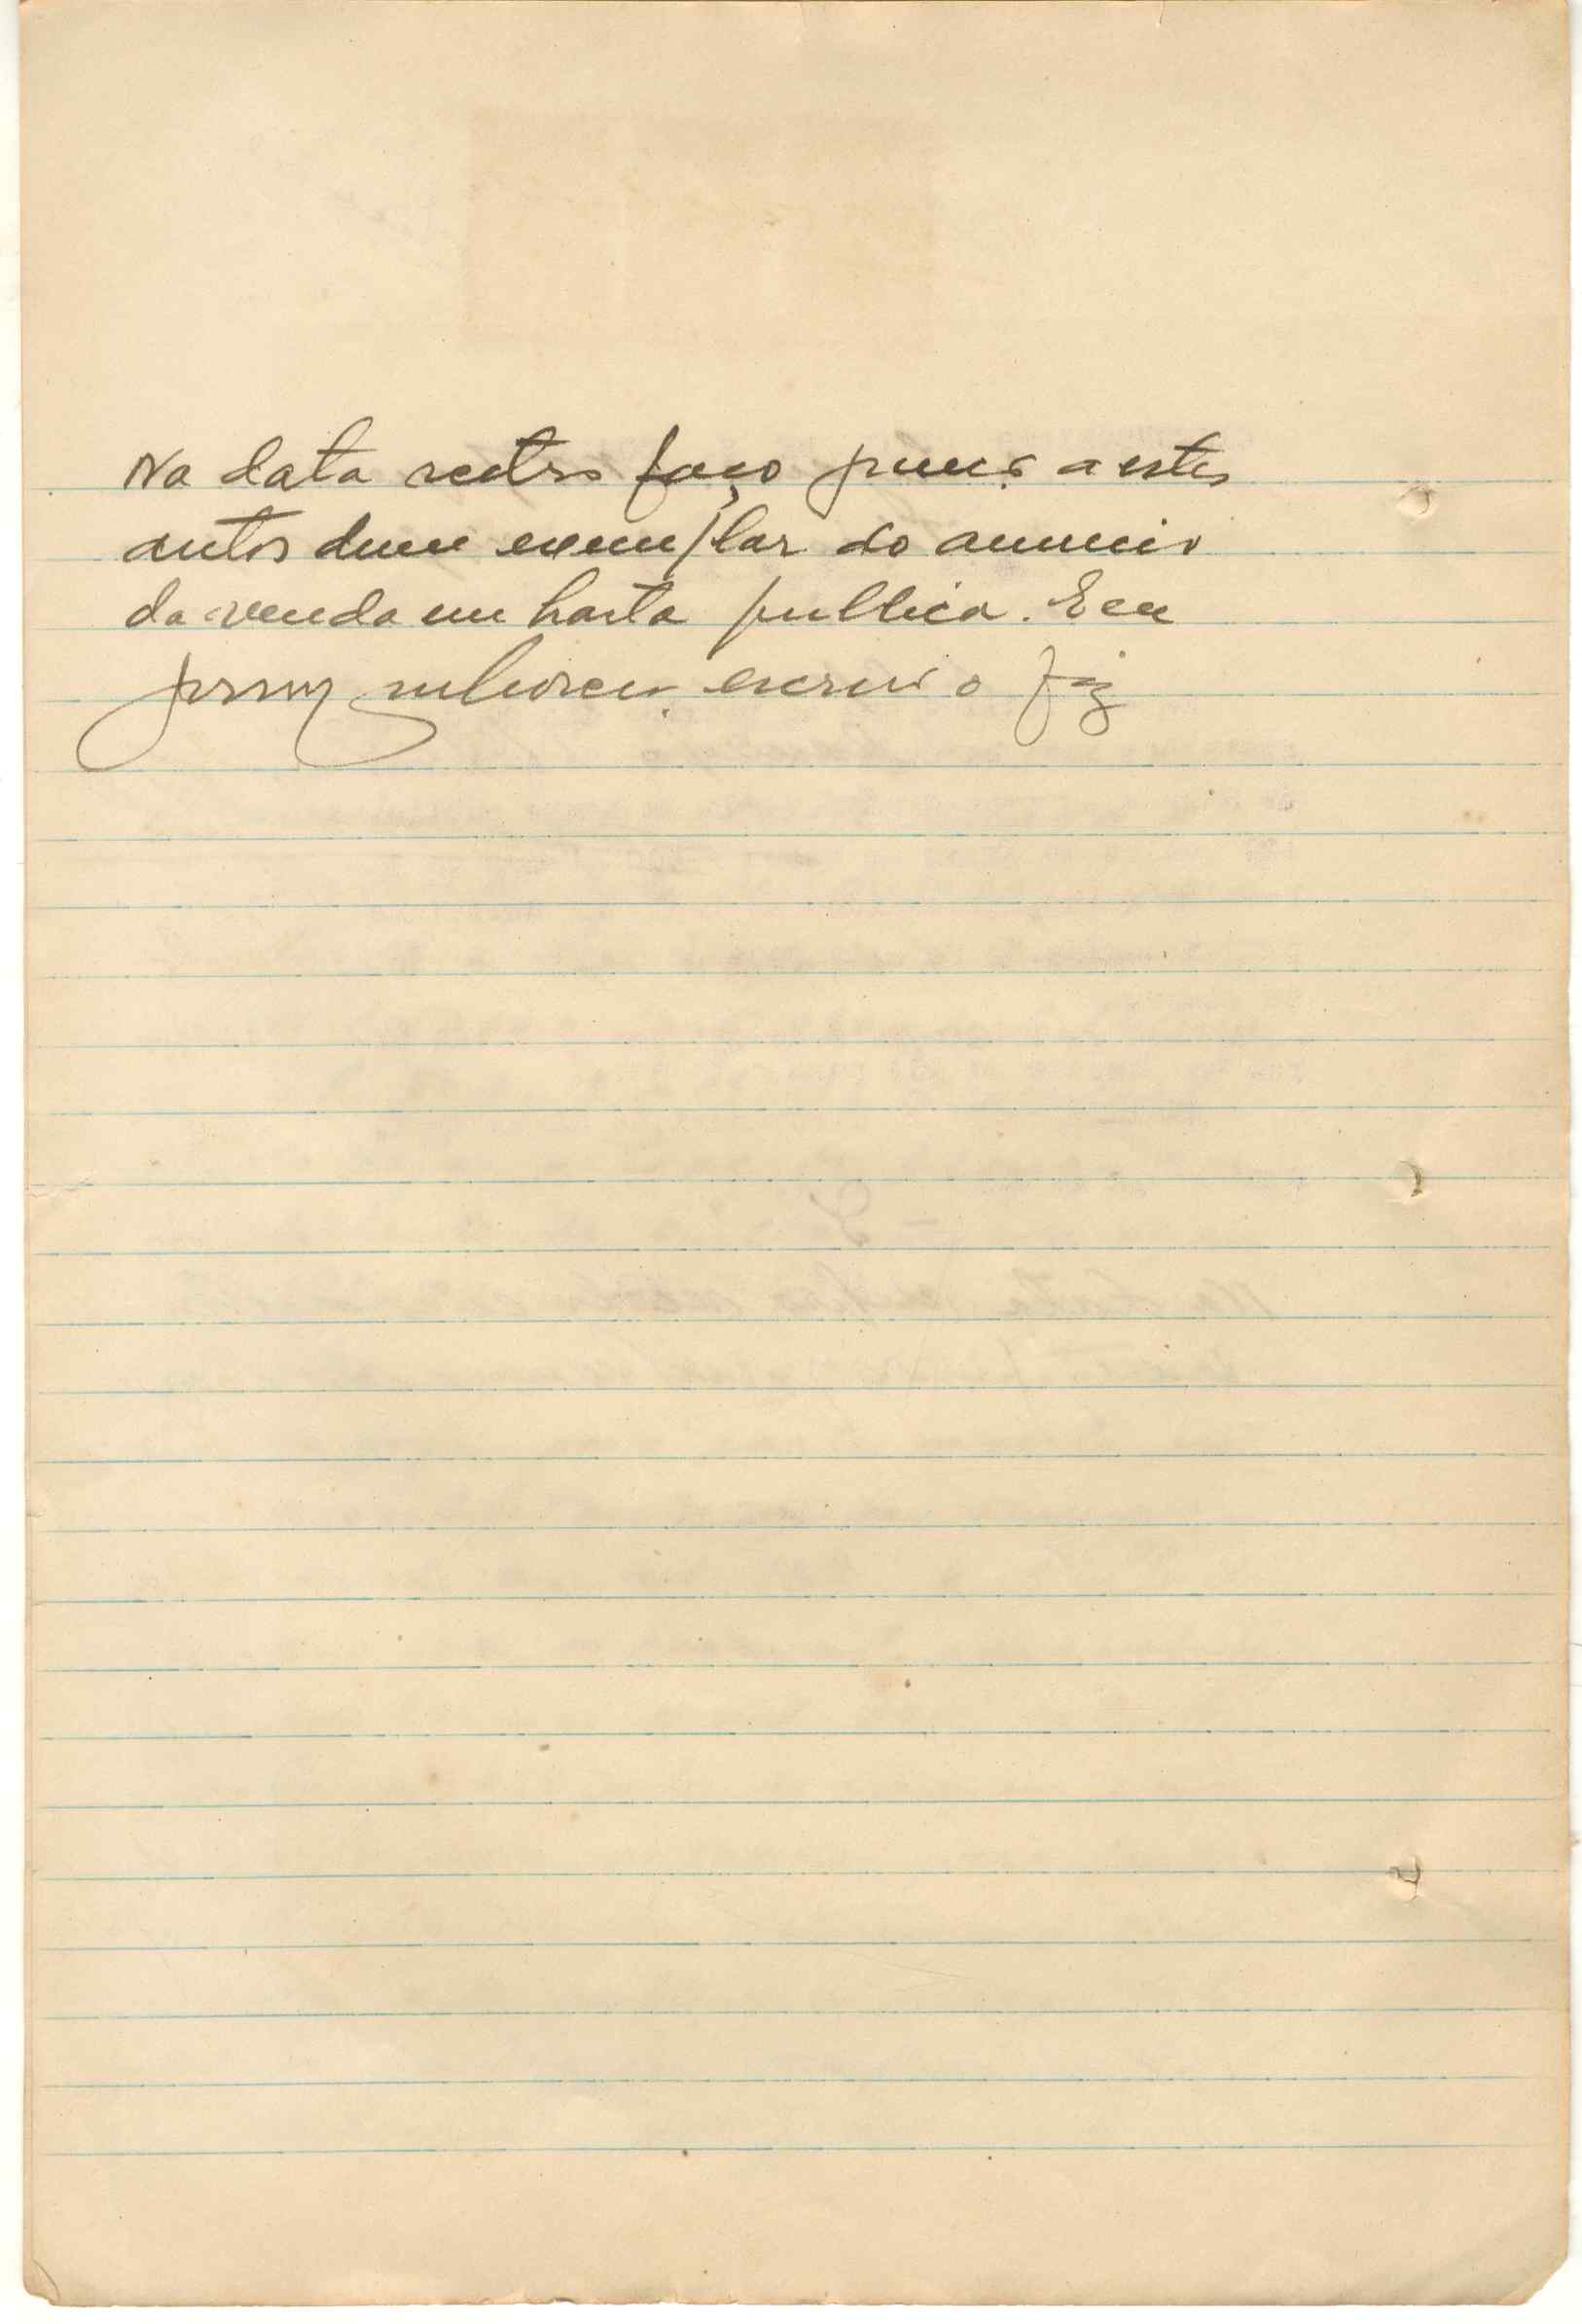 Na data retro faço junção a estes
autos dum exemplar do anuncio
da venda em hasta publica. E eu
escrivão o fiz